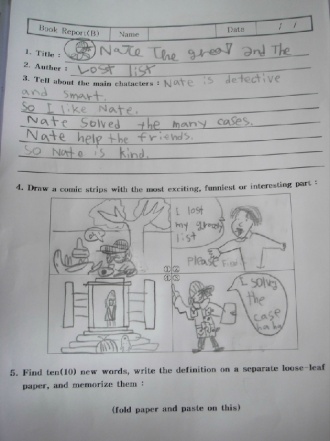 Book Report(B) Name Date / /
1. Title : Nate The great and the
2. Auther : Lost list
3. Tell about the main chatacters : Nate is detective
and smart.
So I like Nate.
Nate solved the many cases.
Nate help the friends.
So Nate is kind.
4. Draw a comic strips with the most exciting, funniest or interesting part :
I lost
my
list
Please
① ②
③ ④
I solve
the
case
haha
5. Find ten(10) new words, write the definition on a separate loose-leaf
paper, and memorize them :
(fold paper and paste on this)